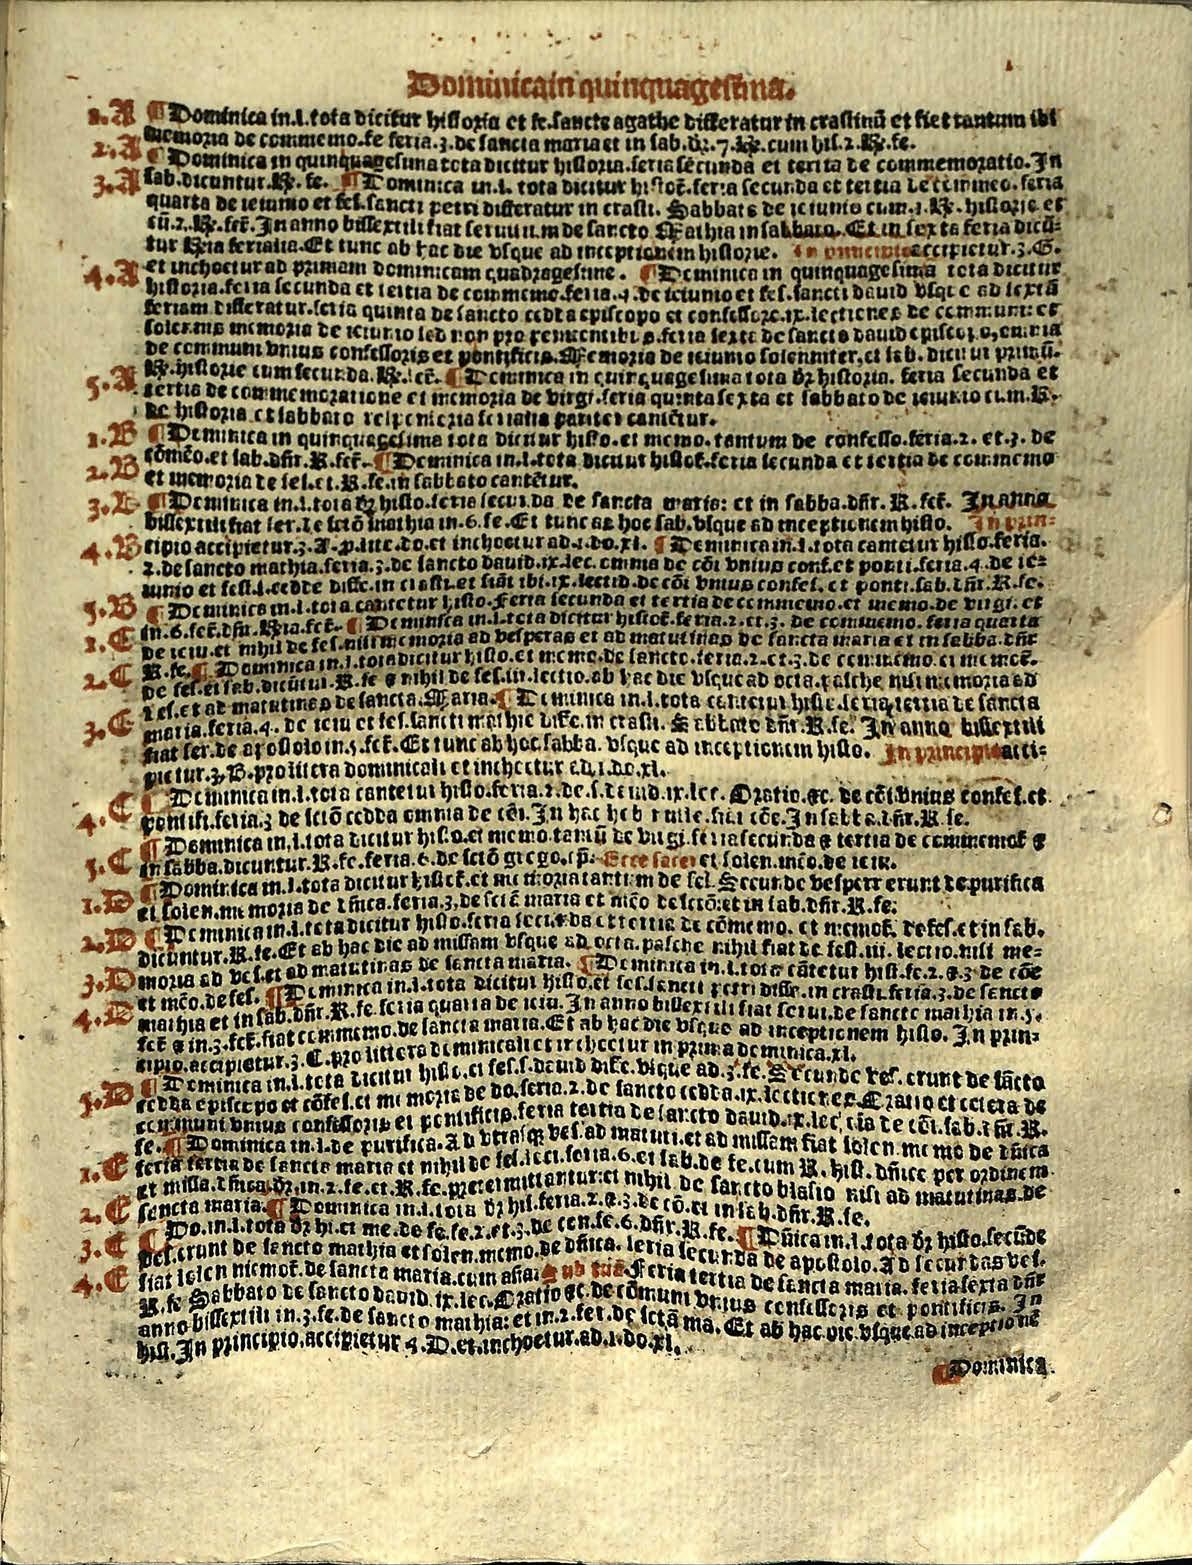 Dominica in quinquagesima.
1.A ¶Dominica in.l.tota dicitur historia et fe.sancte agathe differatur in crastinū et fiet tantum ibi
memoria de commemo.fe feria.3.de sancta maria et in sab.dr̄.7.℟.cum his.2.℟.fe.
2.A ¶Dominica in quinquagesima tota dicitur historia.feria secunda et tertia de commemoratio.In
3.A sab.dicuntur.℟.fe. ¶Dominica in.l. tota dicitur histor̄.feria secunda et tertia de commeo.feria
quarta de ieiunio et fes.sancti petri differatur in crasti. Sabbato de ieiunio cum.1.℟.historie et
cū.2.℟.fer̄.In anno bissextili fiat seruitium de sancto Mathia in sabbato. Et in sexta feria dicū-
tur ℟ia ferialia.Et tunc ab hac die vsque ad inceptionem historie. In principio accipietur.3.G.
4.A et inchoetur ad primam dominicam quadragesime. ¶Dominica in quinquagesima tota dicitur
historia.feria secunda et tertia de commemo.feria.4.de ieiunio et fes.sancti dauid vsque ad sextā
feriam differatur.feria quinta de sancto cedda episcopo et confessore.ix.lectiones de communi: et
solennis memoria de ieiunio sed non pro feria sexta de sancto dauid episcopo, omnia
de communi vnius confessoris et pontificis. Memoria de ieiunio solenniter.et sab. dicitur primū.
5.A ℟.historie cum secunda.℟.fer̄. ¶Dominica in quinquagesima tota dr̄ historia. feria secunda et
tertia de commemoratione et memoria de virgi.feria quinta sexta et sabbato de ieiunio cum.℟.
de historia et sabbato responsoria ferialia pariter cantētur.
1.B ¶Dominica in quinquagesima tota dicitur histo.et memo. tantum de confesso.feria.2. et.3. de
2.B cōmēo.et sab.dn̄r.℟.fer̄. ¶Dominica in.l.tota dicitur histor̄.feria secunda et tertia de commemo
et memoria de fes.et.℟.fe.in sabbato cantētur.
3.B ¶Dominica in.l.tota dr̄ histo.feria secunda de sancta maria: et in sabba.dn̄r. ℟. fer̄. In anno
bissextili fiat ser.de scтō mathia in.6.fe.Et tunc ab hoc sab.vsque ad inceptionem histo. In prin-
4.B cipio accipietur.3.A.p.litte.do.et inchoetur ad.1.do.xl. ¶Dominica in.l.tota cantetur histo.feria.
2.de sancto mathia.feria.3.de sancto dauid.ix.lec. omnia de cōi vnius conf.et ponti.feria.4.de ie-
iunio et fest.s.cedde diffe.in crasti.et fiāt ibi.ix.lectiō.de cōi vnius confes. et ponti.sab.dn̄r.℟.fe.
5.B ¶Dominica in.l.tota cantetur histo.Feria secunda et tertia de commemo.et memo.de virgi. et
1.C in.6.fer̄.dn̄r.℟ia.fer̄. ¶Dominica in.l.tota dicitur histor̄.feria.2.et.3. de commemo. feria quarta
de ieiu.et nihil de fes.nisi memoria ad vesperas et ad matutinas de sancta maria et in sabba.dn̄r
2.C ℟.fe.¶.Dominica in.l.tota dicitur histo.et memo.de sancto.feria.2.et.3.de commemo.et memor̄.
de fes.et sab.dicūtur.℟.fe ⁊ nihil de fes.in lectio.ab hac die vsque ad octa.pasche nisi memoria ad
3.C ves.et ad matutinas de sancta.Maria. ¶Dominica in.l.tota cantetur histo.feria tertia de sancta
maria.feria.4. de ieiu et fes.sancti mathie diffe.in crasti. Sabbato dn̄r.℟.fe. In anno bissextili
fiat ser.de apostolo in.5.fer̄.Et tunc ab hoc sabba. vsque ad inceptionem histo. In principio acci-
pietur.3.B.pro littera dominicali et inchoetur ad.1.do.xl.
4.C ¶Dominica in.l.tota cantetur histo.feria.2.de.s.dauid.ix.lec. Oratio.⁊c. de cōi.vnius confes.et
pontifi.feria.3 de sctō cedda omnia de cōi. In hac heb In sabba.dn̄r.℟.fe.
5.C ¶Dominica in.l.tota dicitur histo.et memo.tantū de virgi.feria secunda ⁊ tertia de commemor̄ ⁊
in sabba.dicuntur.℟.fe.feria.6.de sctō grego. Ecce sacer et solen.meō.de ieiu.
1.D ¶Dominica in.l.tota dicitur histor̄.et memoria tantum de fes. Secunde vespere erunt de purifica
et solen.memoria de dn̄ica.feria.3.de sctā maria et meō de sctō:et in sab.dn̄r.℟.fe.
2.D ¶Dominica in.l.tota dicitur histo.feria secunda et tertia de cōmemo. et memor̄. de fes.et in sab.
dicuntur.℟.fe.Et ab hac die ad missam vsque ad octa.pasche nihil fiat de fest.iii. lectio.nisi me-
3.D moria ad ves.et ad matutinas de sancta maria. ¶Dominica in.l.tota cātetur hist.fe.2.⁊.3 de cōe
4.D et meō.de fes. ¶Dominica in.l.tota dicitur histo.et fes.sancti petri diffe.in crasti.feria.3.de sancto
mathia et in sab.dn̄r.℟.fe feria quarta de ieiu.In anno bissextili fiat serui.de sancto mathia in.5.
fer̄ ⁊ in.3.fer̄.fiat commemo.de sancta maria.Et ab hac die vsque ad inceptionem histo. In prin-
cipio.accipietur.3.C.pro littera dominicali et inchoetur in prima dominica.xl.
5.D ¶Dominica in.l.tota dicitur histo.et fes.s.dauid diffe.vsque ad.3.fe.Secunde ves. erunt de sācto
cedda episcopo et cōfes.et memoria de do.feria.2.de sancto cedda.ix.lectiones.Oratio et cetera de
communi vnius confessoris et pontificis.feria tertia de sancto dauid.ix.lec.oīa de cōi.sab.dn̄r.℟.
1.E fe. ¶Dominica in.l.de purifica.Ad vtrasq̄ ves.ad matuti.et ad missam fiat solen memo de dn̄ica
feria tertia de sancta maria et nihil de fes.lect.feria.6.et sab.de fe.cum ℟. hist. dn̄ice per ordinem
et missa.dn̄ica.dr̄.in.2.fe.et.℟.fe.pretermittantur.et nihil de sancto blasio nisi ad matutinas.de
2.E sancta maria. ¶Dominica in.l.tota dr̄ his.feria.2.⁊.3.de cō.et in sab.dn̄r.℟.fe.
3.E ¶Do.in.l.tota dr̄ hi.et me.de fe.fe.2.et.3.de com.fe.6.dn̄r.℟.fe. ¶Dn̄ica in.l.tota dr̄ histo.secūde
ves.erunt de sancto mathia et solen.memo.de dn̄ica. feria secunda de apostolo.Ad secundas ves.
4.E fiat solen memor̄.de sancta maria.cum aña: Sub tuā. Feria tertia de sancta maria. feria sexta dn̄r
℟.fe Sabbato de sancto dauid.ix.lec.Oratio ⁊c.de cōmuni vnius confessoris et pontificis. In
anno bissextili in.3.fe.de sancto mathia: et in.2.fer.de sctā ma. Et ab hac die.vsque ad inceptionē
hist.In principio.accipietur 4.D.et.inchoetur.ad.1.do.xl.
¶Dominica.